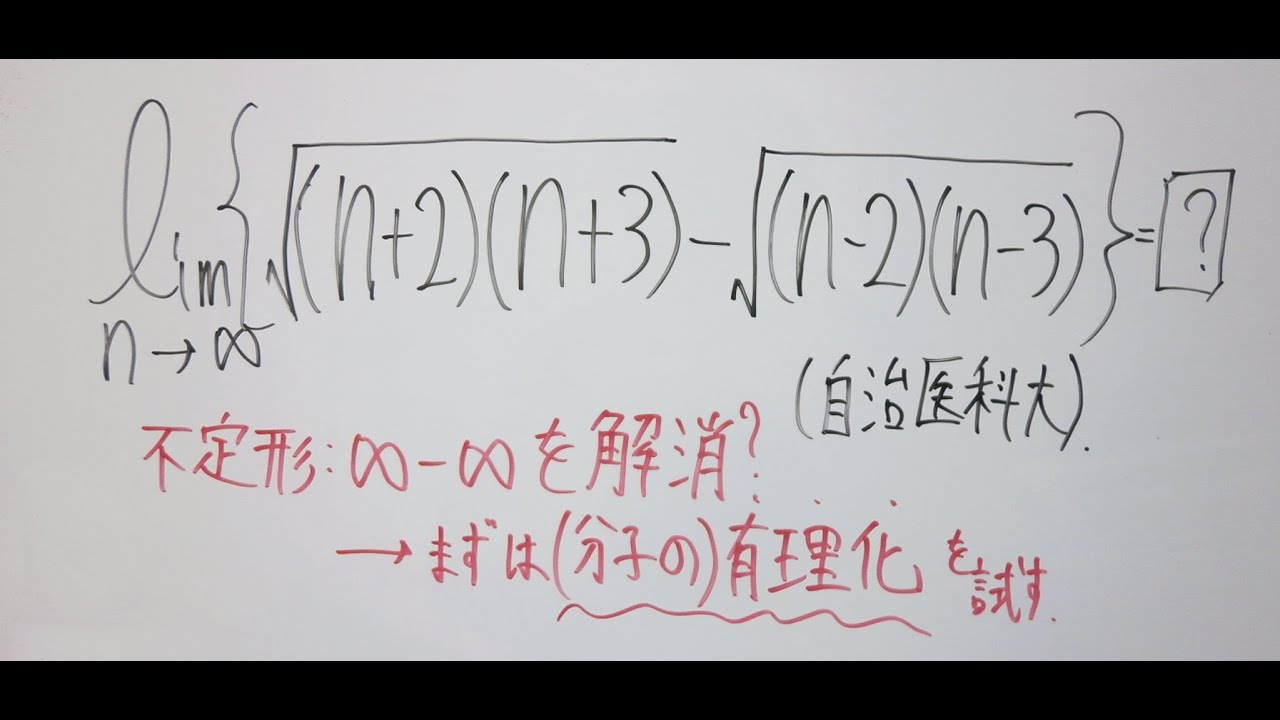 lim n→∞ {√(n+2)(n+3) - √(n-2)(n-3)} = ?
(自治医科大).
不定形:∞-∞を解消?
→まずは(分子の)有理化を試す.